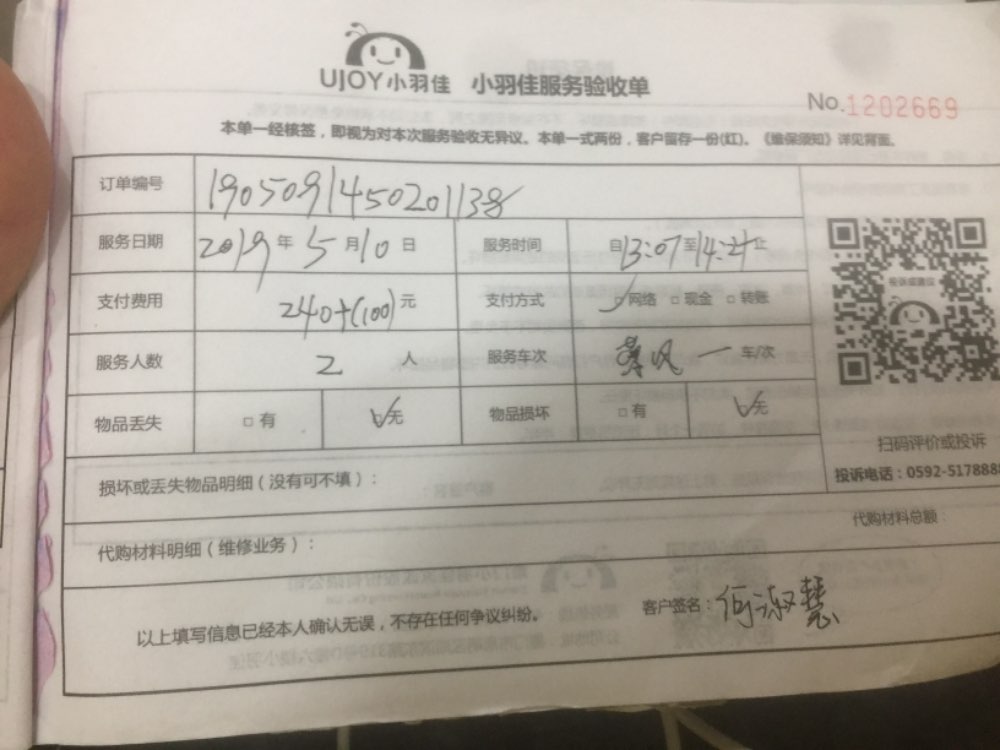 UJOY小羽佳 小羽佳服务验收单
No.1202669
本单一经核签，即视为对本次服务验收无异议。本单一式两份，客户留存一份(红)。《维保须知》详见背面。
订单编号 1905091450201138
服务日期 2019年5月10日 服务时间 自13:07至14:21止
支付费用 240+(100)元 支付方式 ☑网络 □现金 □转账
服务人数 2人 服务车次 一车/次
物品丢失 □有 ☑无 物品损坏 □有 ☑无
投诉或建议
扫码评价或投诉
投诉电话：0592-5178888
损坏或丢失物品明细（没有可不填）：
代购材料明细（维修业务）：
代购材料总额：
以上填写信息已经本人确认无误，不存在任何争议纠纷。 客户签名：何淑慧